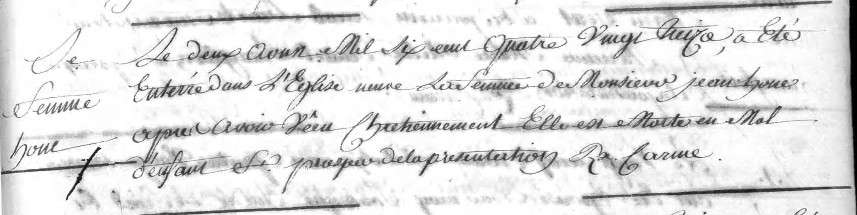 La
Femme
houe
Le deux Aoust Mil Six cent Quatre Vingt treize, a Eté
Enterré dans L'Eglise neuve La Femme de Monsieur jean houe
apres Avoir Vêcu Chretiennement Elle est Morte en Mal
d'enfant Fr. prosper de la presentation R. Carme.